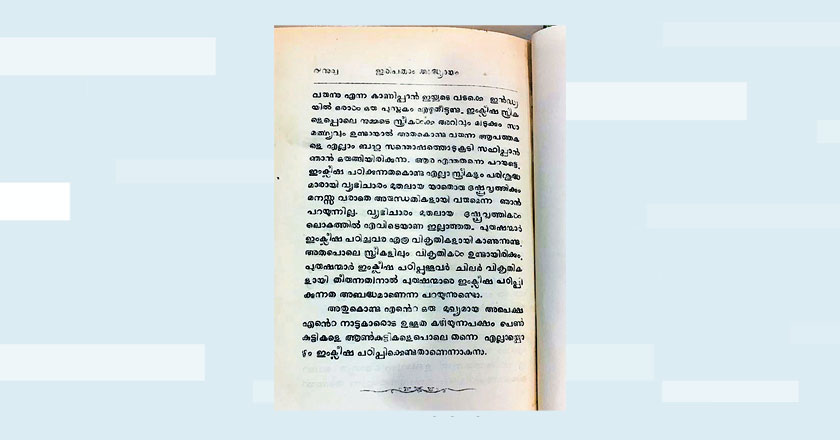 ഇരുപതാം അദ്ധ്യായം
വരുന്നു എന്ന കാണിപ്പാൻ ഇയ്യിടെ വടക്കെ ഇൻഡ്യ
യിൽ ഒരാൾ ഒരു പുസ്തകം എഴുതീട്ടുണ്ടു. ഇംക്ലീഷ സ്ത്രീക
ളെപ്പൊലെ നമ്മുടെ സ്ത്രീകൾക്ക അറിവും മിടുക്കും സാ
മൎത്ഥ്യവും ഉണ്ടായാൽ അതകൊണ്ടു വരുന്ന ആപത്തുക
ളെ എല്ലാം ബഹു സന്തൊഷത്തൊടുകൂടി സഹിപ്പാൻ
ഞാൻ ഒരുങ്ങിയിരിക്കുന്നു. ആര എന്തുതന്നെ പറയട്ടെ.
ഇംക്ലീഷ പഠിക്കുന്നതകൊണ്ടു എല്ലാ സ്ത്രീകളും പരിശുദ്ധ
മാരായി വ്യഭിചാരം മുതലായ യാതൊരു ദുഷ്പ്രവൃത്തിക്കും
മനസ്സ വരാതെ അരുന്ധതികളായി വരുമെന്ന ഞാൻ
പറയുന്നില്ല. വ്യഭിചാരം മുതലായ ദുഷ്പ്രവൃത്തികൾ
ലൊകത്തിൽ എവിടെയാണ ഇല്ലാത്തത. പുരുഷന്മാർ
ഇംക്ലീഷ പഠിച്ചവര എത്ര വികൃതികളായി കാണുന്നുണ്ടു.
അതപൊലെ സ്ത്രീകളിലും വികൃതികൾ ഉണ്ടായിരിക്കും.
പുരുഷന്മാർ ഇംക്ലീഷ പഠിപ്പുള്ളവർ ചിലർ വികൃതിക
ളായി തീരുന്നതിനാൽ പുരുഷന്മാരെ ഇംക്ലീഷ പഠിപ്പി
ക്കുന്നത അബദ്ധമാണെന്ന പറയുന്നുണ്ടൊ.
അതുകൊണ്ടു എന്റെ ഒരു മുഖ്യമായ അപെക്ഷ
എന്റെ നാട്ടുകാരൊട ഉള്ളത കഴിയുന്നപക്ഷം പെൺ
കുട്ടികളെ ആൺകുട്ടികളെപൊലെ തന്നെ എല്ലായ്പൊ
ഴും ഇംക്ലീഷ പഠിപ്പിക്കെണ്ടതാണെന്നാകുന്നു.